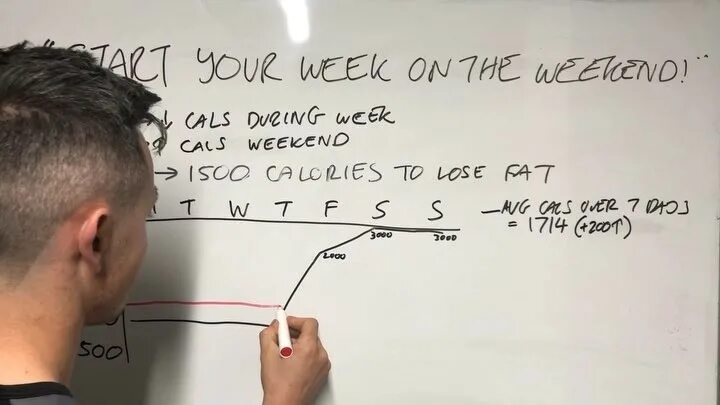 START YOUR WEEK ON THE WEEKEND!"
↓ CALS DURING WEEK
CALS WEEKEND
→ 1500 CALORIES TO LOSE FAT
T W T F S S
— AVG CALS OVER 7 DAYS
= 1714 (+200↑)
2000
3000
3000
500